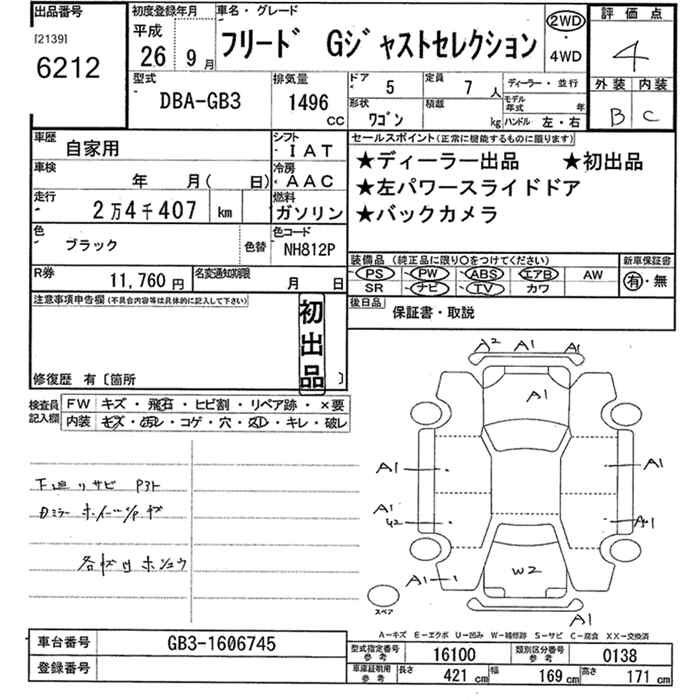 出品番号
[2139]
6212
初度登録年月
平成
26年 9月
車名・グレード
フリード Gジャストセレクション
2WD
・
4WD
評価点
4
外装 内装
B C
型式
DBA-GB3
排気量
1496
CC
ドア 5
定員 7 人
ディーラー・並行
形状 ワゴン
積載 kg
モデル年式 年
ハンドル 左・右
車歴 自家用
シフト IAT
車検 年 月( 日)
冷房 AAC
走行 2万4千407 km
燃料 ガソリン
色 ブラック
色替
色コード NH812P
R券 11,760円
名変通知期限 月 日
セールスポイント(正常に機能するものに限ります)
★ディーラー出品 ★初出品
★左パワースライドドア
★バックカメラ
装備品 (純正品に限り○をつけてください)
新車保証書
PS PW ABS エアB AW
SR ナビ TV カワ
有・無
後日品 保証書・取説
注意事項申告欄(不具合内容等は具体的に記入して下さい)
初出品
修復歴 有〔箇所 〕
検査員記入欄
FW キズ・飛石・ヒビ割・リペア跡・×要
内装 キズ・汚レ・コゲ・穴・スレ・キレ・破レ
A2 A1 A1
A1
A1 A1
下廻リサビ
A1
A1
W2
A1
A1
スペア
A-キズ E-エクボ U-凹み W-補修跡 S-サビ C-腐食 XX-交換済
車台番号 GB3-1606745
登録番号
型式指定番号 参考 16100
類別区分番号 参考 0138
車庫証明用 参考 長さ 421 cm 幅 169 cm 高さ 171 cm